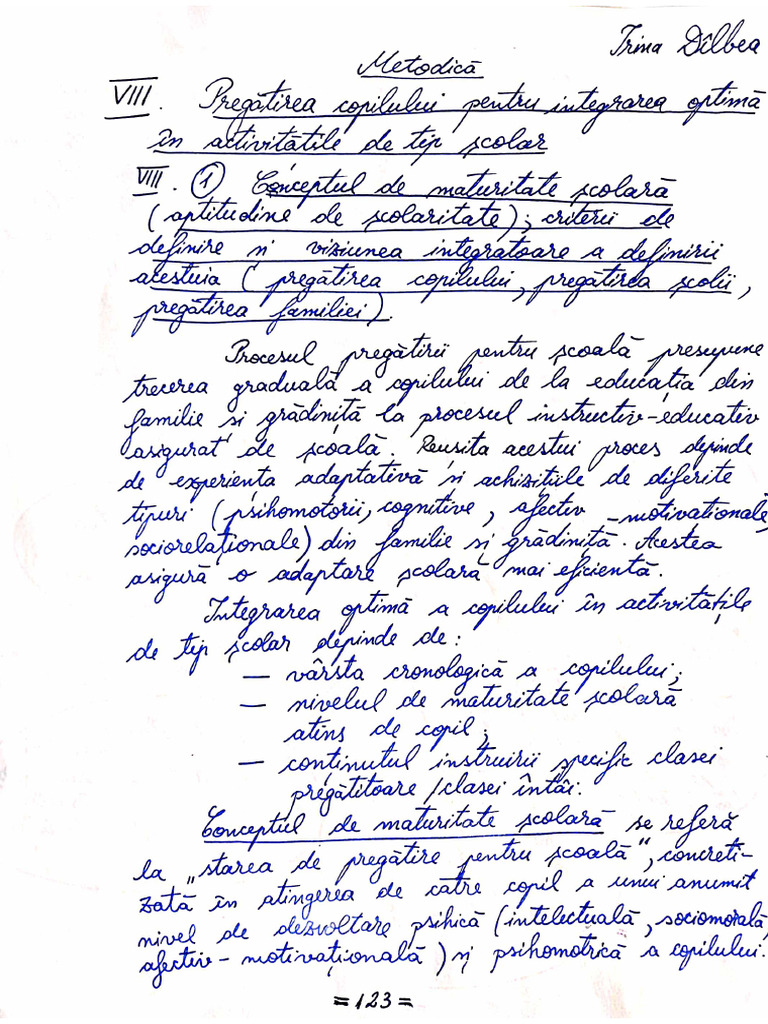 Irina Dîlbea
Metodică
VIII. Pregătirea copilului pentru integrarea optimă
în activitățile de tip școlar
VIII. 1 Conceptul de maturitate școlară
(aptitudine de școlaritate); criterii de
definire și viziunea integratoare a definirii
acestuia (pregătirea copilului, pregătirea școlii,
pregătirea familiei).
Procesul pregătirii pentru școală presupune
trecerea graduală a copilului de la educația din
familie și grădiniță la procesul instructiv-educativ
asigurat de școală. Reușita acestui proces depinde
de experiența adaptativă și achizițiile de diferite
tipuri (psihomotorii, cognitive, afectiv-motivaționale,
sociorelaționale) din familie și grădiniță. Acestea
asigură o adaptare școlară mai eficientă.
Integrarea optimă a copilului în activitățile
de tip școlar depinde de:
— vârsta cronologică a copilului;
— nivelul de maturitate școlară
atins de copil;
— conținutul instruirii specific clasei
pregătitoare/clasei întâi.
Conceptul de maturitate școlară se referă
la „starea de pregătire pentru școală", concreti-
zată în atingerea de către copil a unui anumit
nivel de dezvoltare psihică (intelectuală, sociomorală,
afectiv-motivațională) și psihomotrică a copilului.
=123=